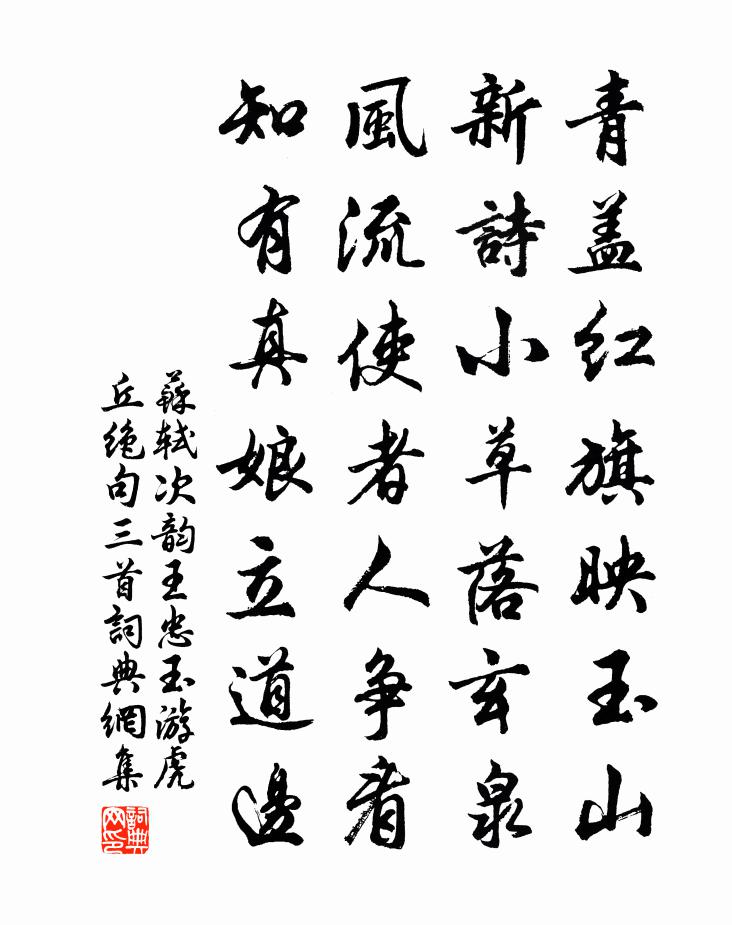 青盖红旗映玉山
新詩小草落玄泉
風流使者人争看
知有真娘立道邊
蘇軾次韵王忠玉游虎
丘绝句三首詞典網集
詞典网印